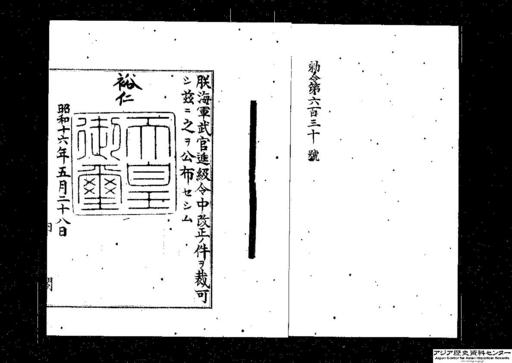 勅令第六百三十號
朕海軍武官進級令中改正ノ件ヲ裁可
シ茲ニ之ヲ公布セシム
裕仁
天皇
御璽
昭和十六年五月二十八日
内閣
アジア歴史資料センター
Japan Center for Asian Historical Records